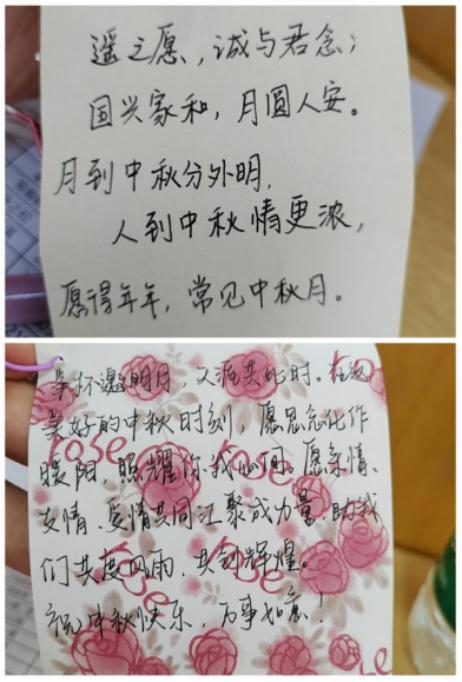 遥之愿，诚与君念；
国兴家和，月圆人安。
月到中秋分外明，
人到中秋情更浓，
愿得年年，常见中秋月。
举杯邀明月，天涯共此时。在这
美好的中秋时刻，愿思念化作
暖阳，照耀你我心间。愿亲情、
友情、爱情共同汇聚成力量，助我
们共度风雨，共创辉煌。
祝中秋快乐，万事如意！
rose
rose
rose
rose
rose
rose